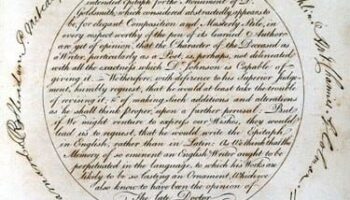 intended Epitaph for the Monument of D.r
Goldsmith, which considered abstractedly appears to
be, for elegant Composition and Masterly Stile, in
every respect worthy of the pen of its learned Author;
are yet of opinion, that the Character of the Deceased as
a Writer, particularly as a Poet, is, perhaps, not delineated
with all the exactness which D.r Johnson is Capable of
giving it. We therefore, with deference to his Superior Judge-
ment, humbly request, that he would at least take the trouble
of revising it; & of making such additions and alterations
as he shall think proper, upon a further perusal: But
if We might venture to express our Wishes, they would
lead us to request, that he would write the Epitaph
in English, rather than in Latin: As We think that the
Memory of so eminent an English Writer ought to be
perpetuated in the language, to which his Works are
likely to be so lasting an Ornament, Which we
also know to have been the opinion of
The late Doctor